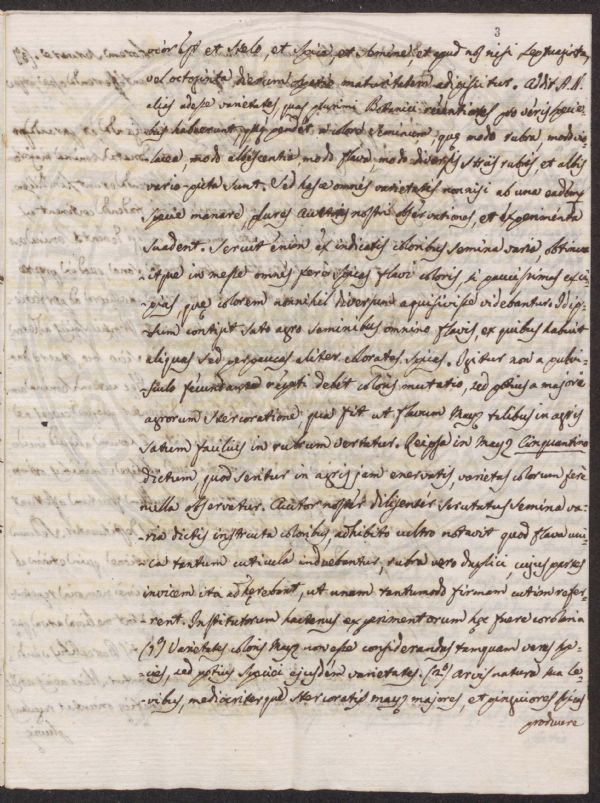 3
ocior est et stelo, et spica, et semine, et apud nos nisi septuaginta,
vel octoginta dierum spatio maturitatem adipiscitur. Addit A. N.
alias adesse varietates, quas plurimi Botanici recentiores pro veris specie-
bus habuerunt, quæ pendent a colore seminum, quæ modo rubra modo vio-
lacea, modo albescentia modo flava, modo diversis striis rubris et albis
vario-picta sunt. Sed hasce omnes varietates nonnisi ab una eademque
specie manare, plures nostri observationes, et experimenta
suadent. Seruit enim ex indicatis coloribus semina varia, obtinuit
itque in messe omnes fere spicas flavi coloris si paucissimas exci-
pias, quæ colorem nonnihil diversum aquisivisse videbantur. Id ip-
sum contigit sato agro seminibus omnino flavis, ex quibus habuit
aliquas sed perpaucas aliter coloratas spicas. Igitur non a pulvi-
sculo fecundante repeti debet coloris mutatio, sed potius a majore
agrorum stercoratione, qua fit ut flavum Mayz talibus in agris
satum facilius in rubrum vertatur. Reipsa in Mayz Cinquantino
dictum, quod seritur in agris jam enervatis varietas colorum fere
nulla observatur. Auctor noster diligenter scrutatus semina va-
ria dictis instructa coloribus, adhibito vitro notavit quod flava uni-
ca tantum cuticula induebantur, rubra vero duplici, cujus partes
invicem ita adhærebant, ut unam tantumodo firmam cutim refer-
rent. Institutorum hactenus experimentorum hæc fuere corolaria
(1º) Varietates coloris Mayz non esse considerandas tanquam veras spe-
cies, sed potius speciei ejusdem varietates. (2º) Arvis natura sua le-
vibus, mediocriterque stercoratis mayz majores, et pinguiores spicas
producere